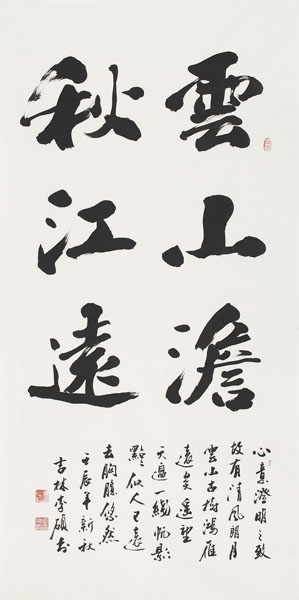 雲山澹
秋江遠
心意澄明之致
故有清風明月
雲山古樹鴻雁
遠矣遥望
天邊一綫帆影
點點似人已遠
去胸臆悠然
壬辰年新秋
吉林李碩书